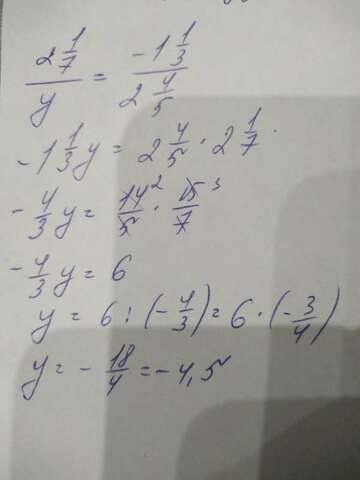 2 1/7 / y = -1 1/3 / 2 4/5
-1 1/3 y = 2 4/5 · 2 1/7.
-4/3 y = 14² / 5 · 15³ / 7
-4/3 y = 6
y = 6 : (-4/3) = 6 · (-3/4)
y = -18/4 = -4,5